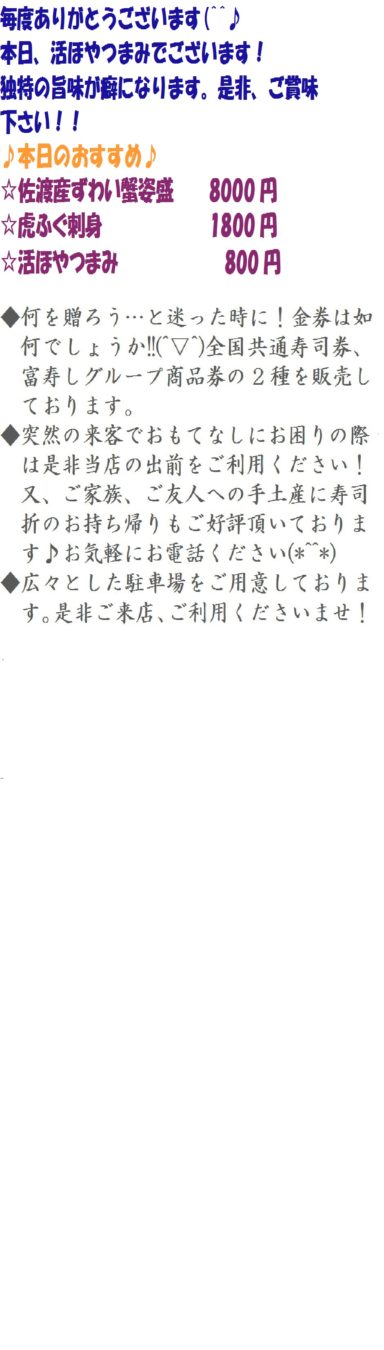 毎度ありがとうございます(^^♪
本日、活ほやつまみでございます！
独特の旨味が癖になります。是非、ご賞味
下さい！！
♪本日のおすすめ♪
☆佐渡産ずわい蟹姿盛　8000円
☆虎ふぐ刺身　1800円
☆活ほやつまみ　800円
◆何を贈ろう…と迷った時に！金券は如
何でしょうか!!(^▽^)全国共通寿司券、
富寿しグループ商品券の２種を販売し
ております。
◆突然の来客でおもてなしにお困りの際
は是非当店の出前をご利用ください！
又、ご家族、ご友人への手土産に寿司
折のお持ち帰りもご好評頂いておりま
す♪お気軽にお電話ください(*^^*)
◆広々とした駐車場をご用意しておりま
す。是非ご来店、ご利用くださいませ！